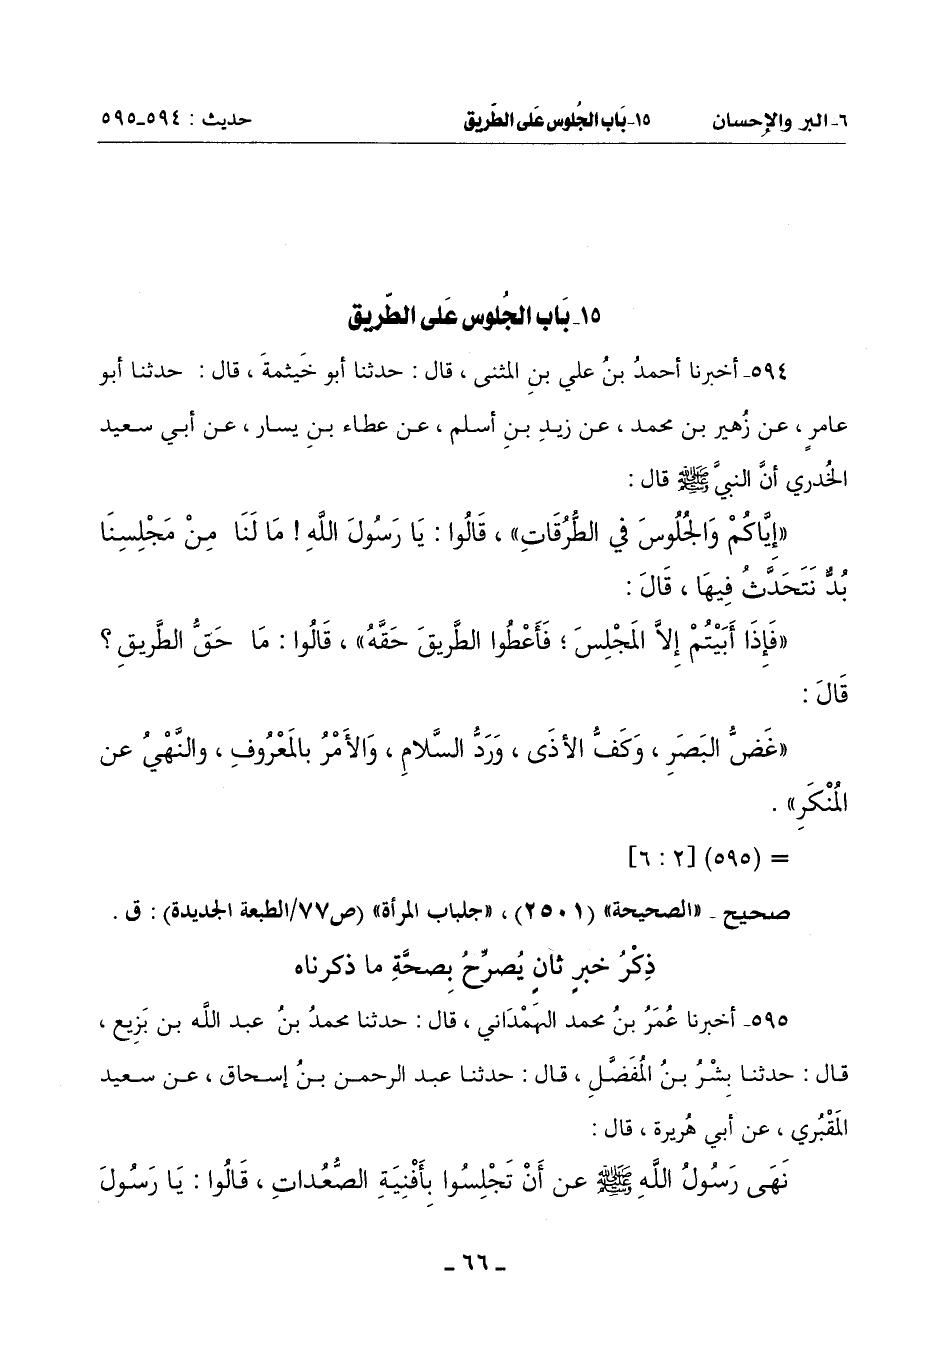 ٦ـ البر والإحسان ١٥ـ بَاب الجُلوس عَلى الطَّريق حديث : ٥٩٤ـ٥٩٥
١٥ـ بَاب الجُلوس عَلى الطَّريق
٥٩٤ـ أخبرنا أحمدُ بنُ علي بنِ المثنى ، قال : حدثنا أبو خَيثمةَ ، قال : حدثنا أبو
عامرٍ ، عن زُهير بن محمد ، عن زيدِ بنِ أسلم ، عن عطاء بنِ يسار ، عن أبي سعيد
الخُدري أنَّ النبيَّ ﷺ قال :
«إِيَّاكُمْ وَالجُلُوسَ في الطُّرُقَاتِ» ، قَالُوا : يَا رَسُولَ اللَّهِ ! مَا لَنَا مِنْ مَجْلِسِنَا
بُدٌّ نَتَحَدَّثُ فِيهَا ، قَالَ :
«فَإِذَا أَبَيْتُمْ إِلاَّ المَجْلِسَ ؛ فَأَعْطُوا الطَّرِيقَ حَقَّهُ» ، قَالُوا : مَا حَقُّ الطَّرِيقِ ؟
قَالَ :
«غَضُّ البَصَرِ ، وَكَفُّ الأذَى ، وَرَدُّ السَّلامِ ، وَالأَمْرُ بالمَعْرُوفِ ، والنَّهْيُ عن
المُنْكَرِ» .
= (٥٩٥) [٢ : ٦]
صحيح ـ «الصحيحة» (٢٥٠١) ، «جلباب المرأة» (ص٧٧/الطبعة الجديدة) : ق .
ذِكْرُ خبرٍ ثانٍ يُصرِّحُ بِصحَّةِ ما ذكرناه
٥٩٥ـ أخبرنا عُمَرُ بنُ محمد الهَمْدَاني ، قال : حدثنا محمدُ بنُ عبد الله بن بَزِيع ،
قال : حدثنا بِشْرُ بنُ المُفَضَّلِ ، قال : حدثنا عبد الرحمن بنُ إسحاق ، عن سعيد
المَقْبُرِي ، عن أبي هُريرة ، قال :
نَهَى رَسُولُ اللَّهِ ﷺ عن أَنْ تَجْلِسُوا بِأَفْنِيَةِ الصُّعُدات ، قَالُوا : يَا رَسُولَ
ـ ٦٦ ـ